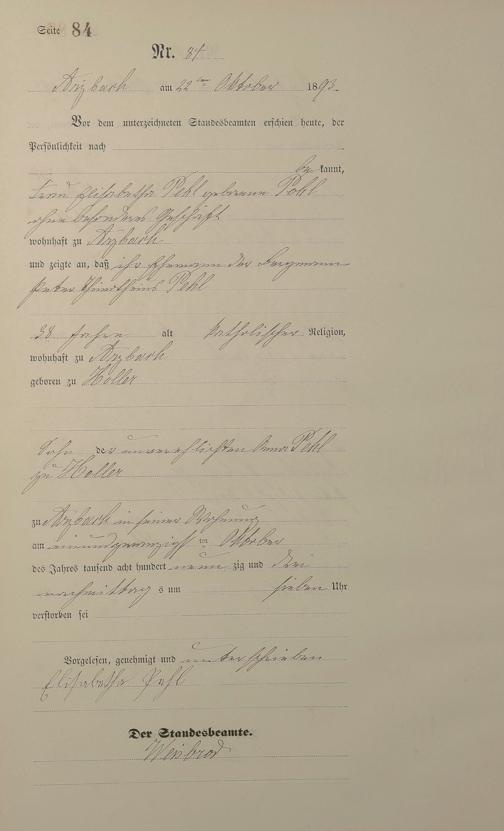 Seite 84
Nr. 84
Arzbach am 22ten Oktober 1893.
Vor dem unterzeichneten Standesbeamten erschien heute, der
Persönlichkeit nach
be kannt,
Frau Elisabetha Pehl geborene Pohl
ohne besonderes Geschäft
wohnhaft zu Arzbach
und zeigte an, daß ihr Ehemann der Bergmann
Peter Pehl
38 Jahre alt katholischer Religion,
wohnhaft zu Arzbach
geboren zu Holler
Sohn der unverehlichten Anna Pehl
zu Holler
zu Arzbach in seiner Wohnung
am einundzwanzigsten Oktober
des Jahres tausend acht hundert neun zig und drei
nachmittags um sieben Uhr
verstorben sei
Vorgelesen, genehmigt und unterschrieben
Elisabetha Pehl
Der Standesbeamte.
Weisbrod